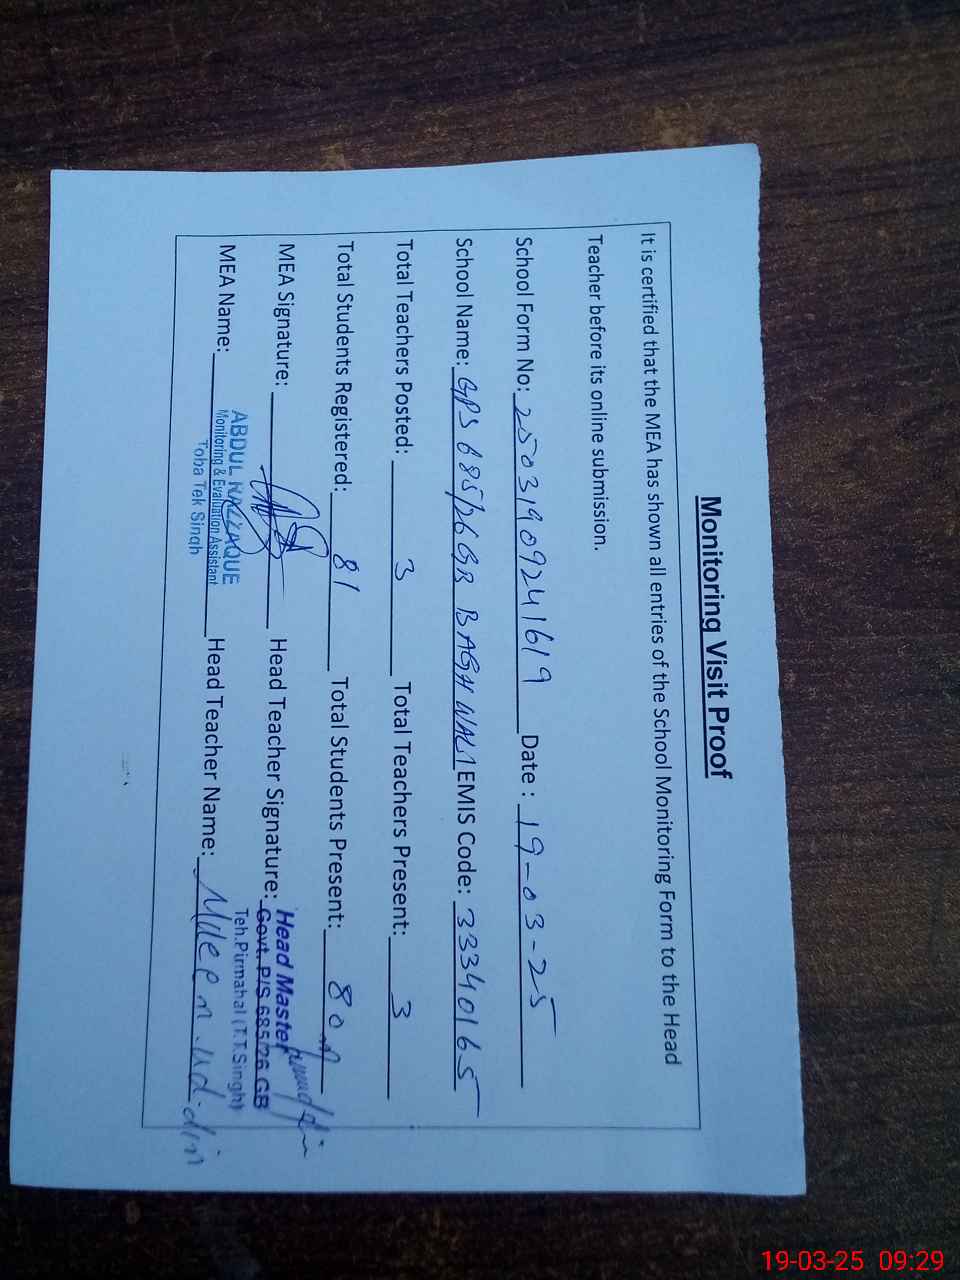 Monitoring Visit Proof
It is certified that the MEA has shown all entries of the School Monitoring Form to the Head
Teacher before its online submission.
School Form No: 25031909241619 Date : 19-03-25
School Name: GPS 685/26 GB BAGH WALI EMIS Code: 33340165
Total Teachers Posted: 3 Total Teachers Present: 3
Total Students Registered: 81 Total Students Present: 80
MEA Signature: Head Teacher Signature:
Head Master
Govt. P/S 685/26 GB
Teh.Pirmahal (T.T.Singh)
MEA Name: Head Teacher Name:
ABDUL RAZZAQUE
Monitoring & Evaluation Assistant
Toba Tek Singh
19-03-25 09:29